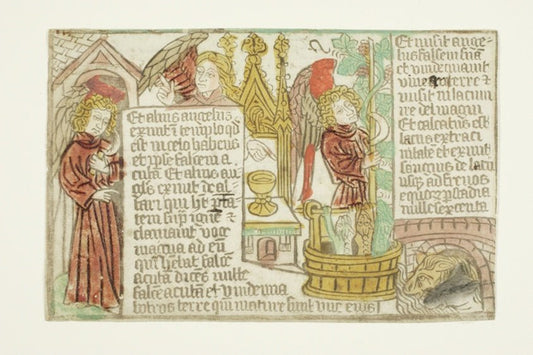 Et alius angelus
exiuit templo qd
est in celo habens
et ipse falcem a
cutā Et alius an
gls exiuit de al
tari qui ht ptā
tem sup igne &
clamauit voce
magna ad eū
qui hebat falcē
acutā dicēs mitte
falcē acutā et vindemia
botros terre qui mature sunt vue eius
Et misit ange
lus falcem suā
et vindemiauit
vineā terre &
misit in lacum
ire dei magni
Et calcatus est
lacus extra ci
uitatē et exiuit
sanguis de lacu
usq ad frenos
equor p stadia
mille sexcenta